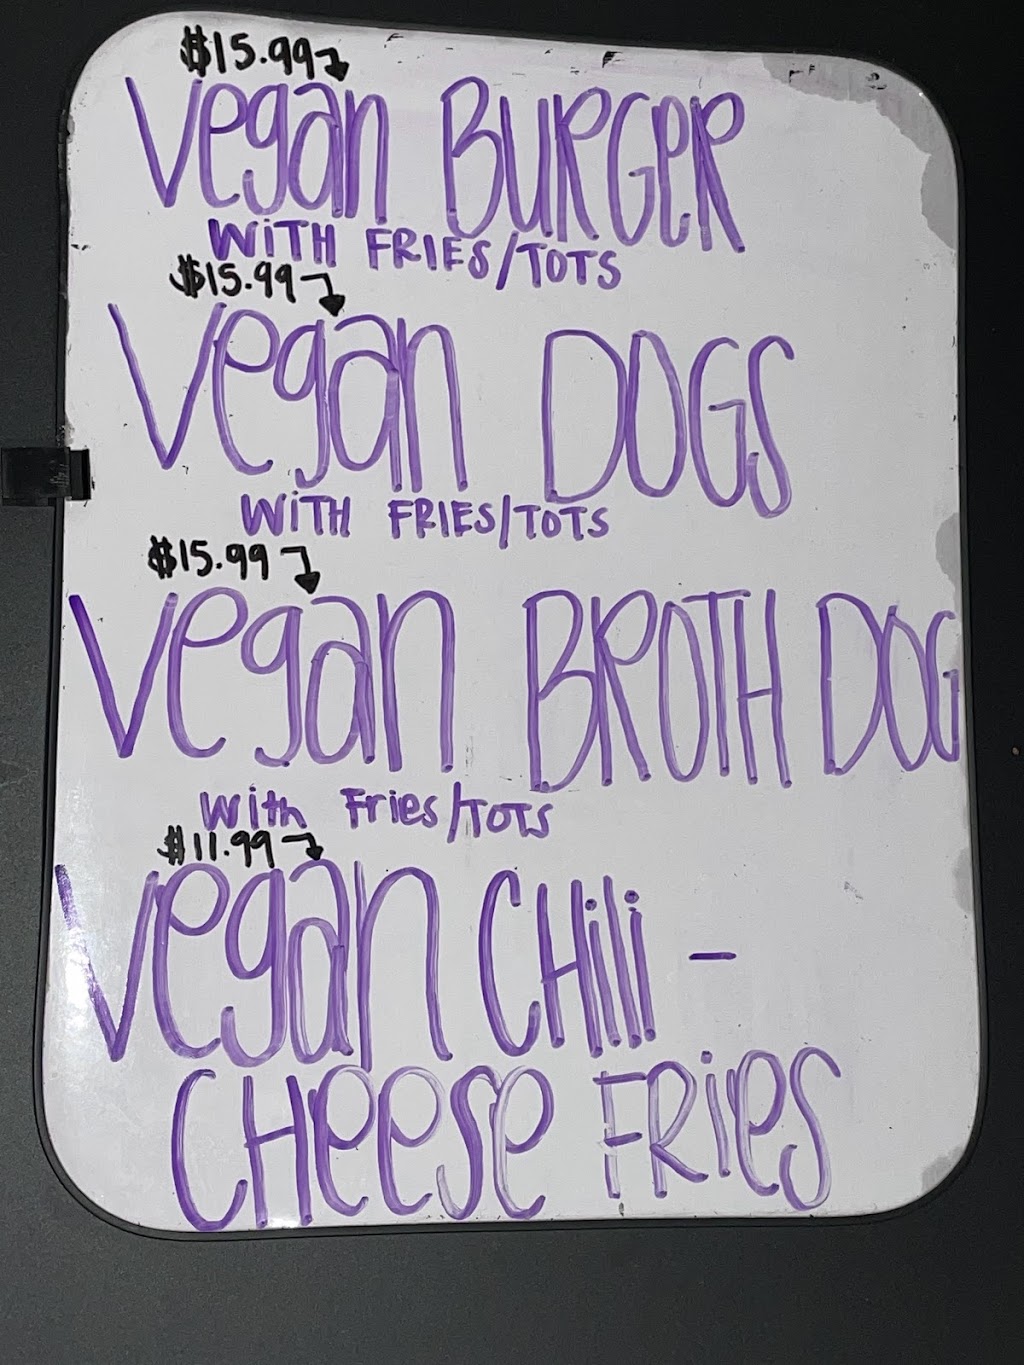 $15.99
Vegan BURGER
WiTH FRIES/TOTS
$15.99
Vegan DOGS
WiTH FRIES/TOTS
$15.99
Vegan BROTH DOG
With Fries/TOTS
$11.99
Vegan CHili -
CHeese FRies